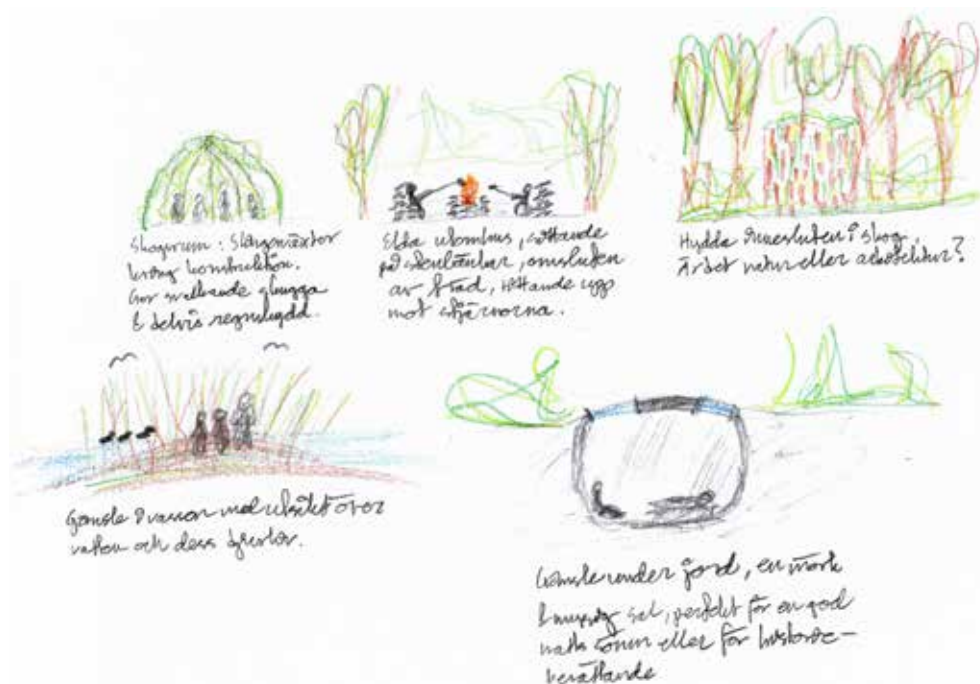 Skogsrum: Slingerväxter
kring konstruktion.
Ger svalkande skugga
& delvis regnskydd.
Elda utomhus, sittande
på stenbänkar, omsluten
av träd, tittande upp
mot stjärnorna.
Hydda innesluten i skog,
Är det natur eller arkitektur?
Gömsle i vassen med utsikt över
vatten och dess gäster.
Gömsle under jord, en mörk
& murrig sal, perfekt för en god
natts sömn eller för historie-
berättande